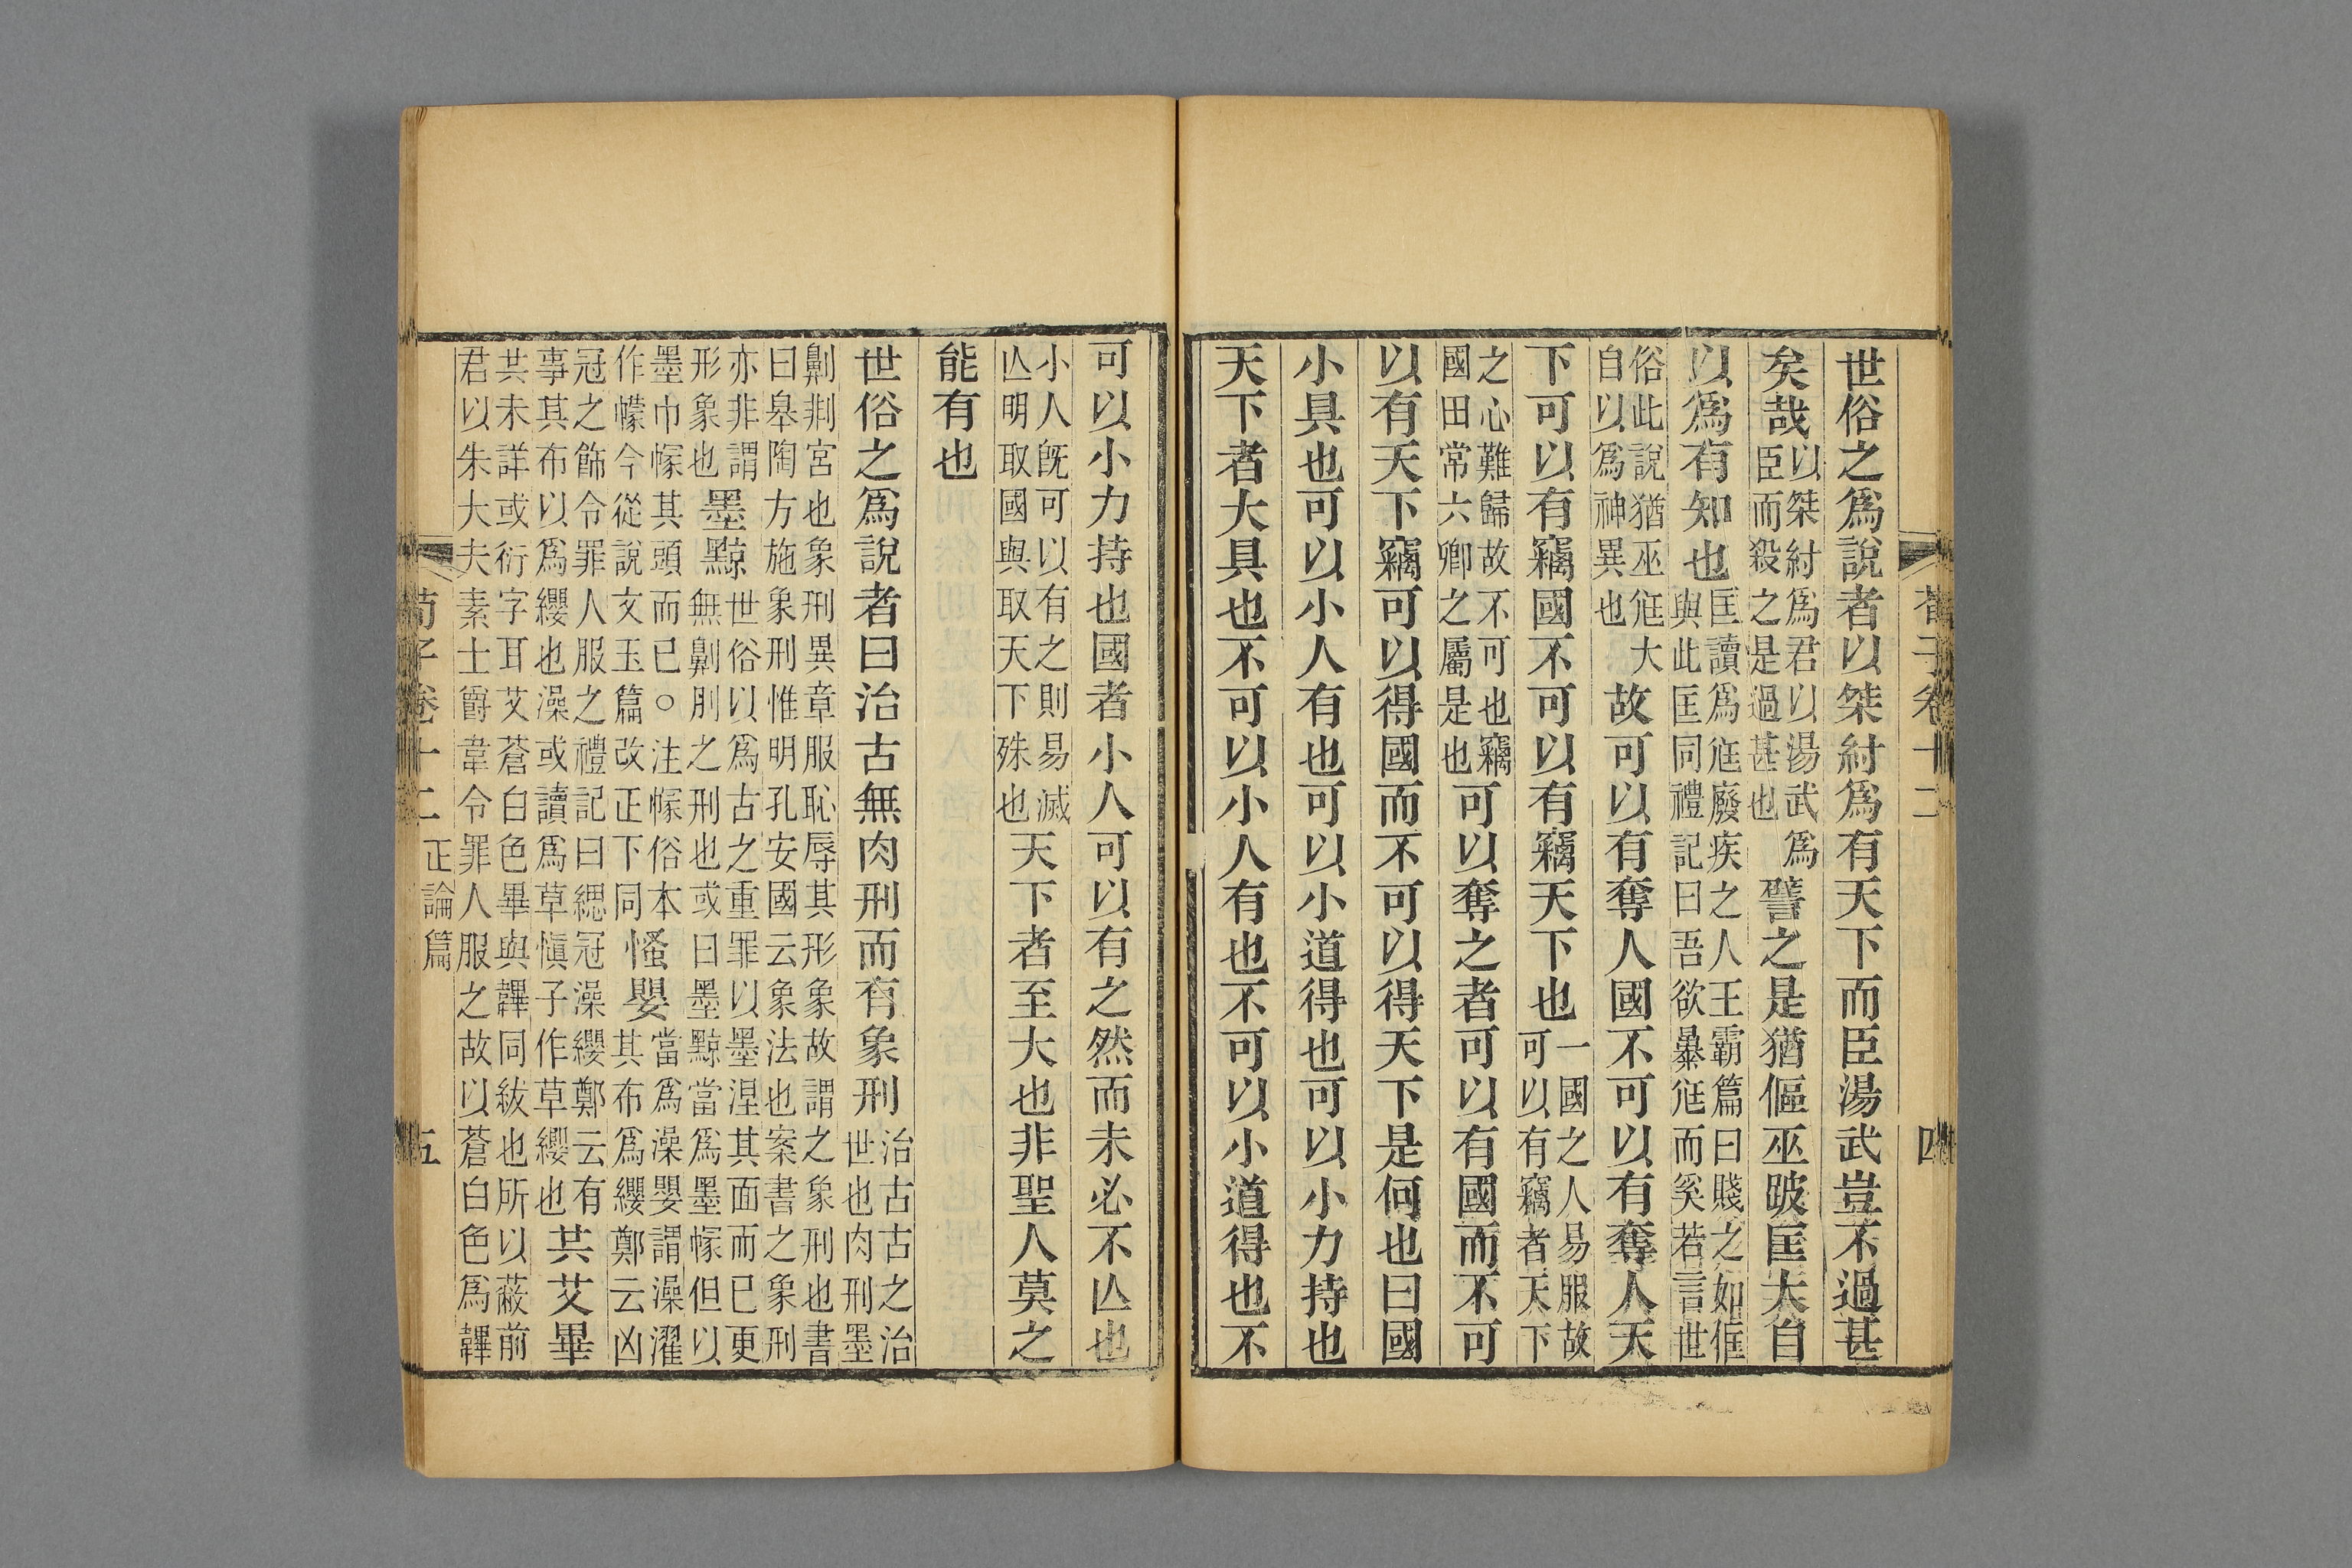 荀子卷十二 四
世俗之爲說者以桀紂爲有天下而臣湯武豈不過甚
矣哉以桀紂爲君以湯武爲臣而殺之是過甚也譬之是猶傴巫跛匡大自
以爲有知也匡讀爲尫廢疾之人王霸篇曰賤之如㑌與此匡同禮記曰吾欲暴尫而奚若言世
俗此說猶巫尫大自以爲神異也故可以有奪人國不可以有奪人天
下可以有竊國不可以有竊天下也一國之人易服故可以有竊者天下
之心難歸故不可也竊國田常六卿之屬是也可以奪之者可以有國而不可
以有天下竊可以得國而不可以得天下是何也曰國
小具也可以小人有也可以小道得也可以小力持也
天下者大具也不可以小人有也不可以小道得也不
可以小力持也國者小人可以有之然而未必不亾也
小人旣可以有之則易滅亾明取國與取天下殊也天下者至大也非聖人莫之
能有也
世俗之爲說者曰治古無肉刑而有象刑治古古之治世也肉刑墨
劓剕宮也象刑異章服恥辱其形象故謂之象刑也書曰皋陶方施象刑惟明孔安國云象法也案書之象刑
亦非謂形象也墨黥世俗以爲古之重罪以墨涅其面而已更無劓刖之刑也或曰墨黥當爲墨㡓但以
墨巾㡓其頭而已○注㡓俗本作幪今從說文玉篇改正下同慅嬰當爲澡嬰謂澡濯其布爲纓鄭云凶
冠之飾令罪人服之禮記曰緦冠澡纓鄭云有事其布以爲纓也澡或讀爲草愼子作草纓也共艾畢
共未詳或衍字耳艾蒼白色畢與韠同紱也所以蔽前君以朱大夫素士爵韋令罪人服之故以蒼白色爲韠
荀子卷十二 正論篇 五